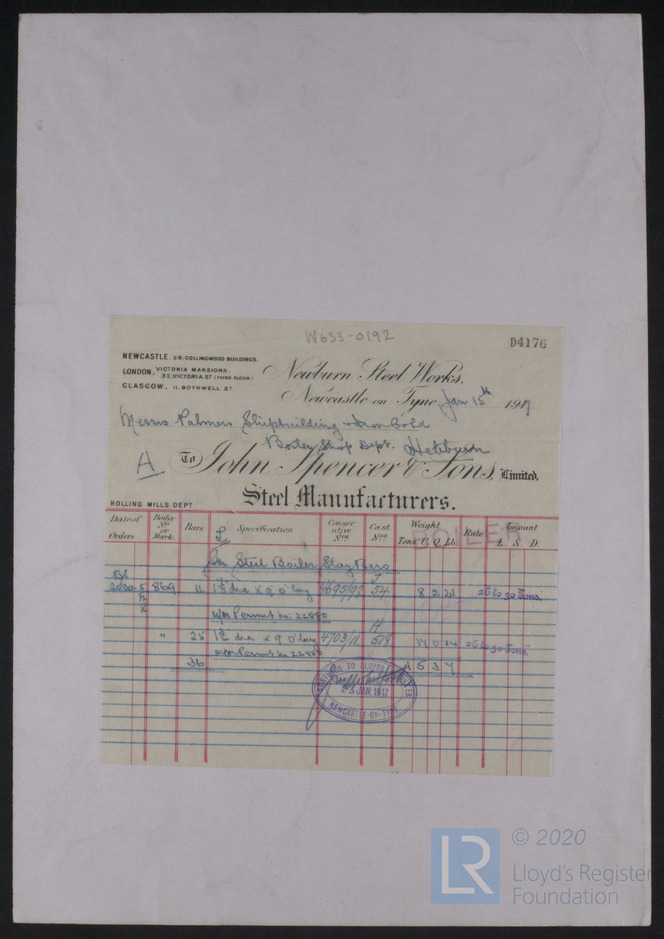 W633-0192
D4176
NEWCASTLE. 29. COLLINGWOOD BUILDINGS.
LONDON, VICTORIA MANSIONS,
32. VICTORIA ST (THIRD FLOOR.)
GLASGOW, 11. BOTHWELL ST
Newburn Steel Works.
Newcastle on Tyne, Jan 15th 1917
Messrs Palmers Shipbuilding & Iron Co Ld
Boiler Shop Dept. Hebburn
A
To John Spencer & Sons, Limited,
Steel Manufacturers.
ROLLING MILLS DEPT
Date of Orders
Boiler No or Mark.
Bars
Specification
Consecutive Nos
Cast Nos
Weight
Tons C. Q. Lb.
Rate
Amount
£. S. D.
BOILER
Steel Boiler Stay Bars
869 11 dia x 9 0 long 4695/98 54 8 2 21 26 to 30 Tons.
W/M Permit No. 22880
" 25 dia x 9 0 long 4703/11 578 26 to 30 Tons.
W/M Permit No 22880
36 1 5 3 7
TO LLOYD'S
23 JAN. 1917
NEWCASTLE-ON-TYNE
LR
© 2020
Lloyd's Register
Foundation